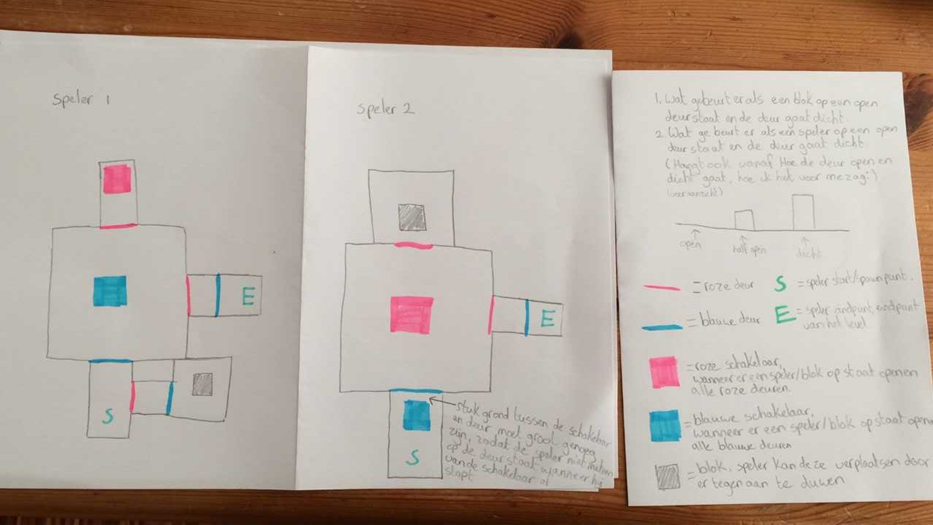 speler 1
E
S
speler 2
E
S
stuk grond tussen de schakelaar
en deur moet groot genoeg
zijn, zodat de speler niet meteen
op de deur staat wanneer hij
van de schakelaar af
stapt
1. Wat gebeurt er als een blok op een open
deur staat en de deur gaat dicht
2. Wat gebeurt er als een speler op een open
deur staat en de deur gaat dicht.
(Hangt ook vanaf. Hoe de deur open en
dicht gaat, hoe ik het voor me zag:)
(vooraanzicht)
open
half open
dicht
= roze deur
S = speler start/spawn punt.
= blauwe deur
E = speler eindpunt, eindpunt
van het level
= roze schakelaar,
wanneer er een speler/blok op staat openen
alle roze deuren.
= blauwe schakelaar,
wanneer er een speler/blok op staat openen
alle blauwe deuren
= blok, speler kan deze verplaatsen door
er tegen aan te duwen